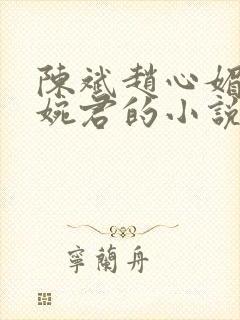 陳斌趙心媚
婉君的小說
寧蘭舟